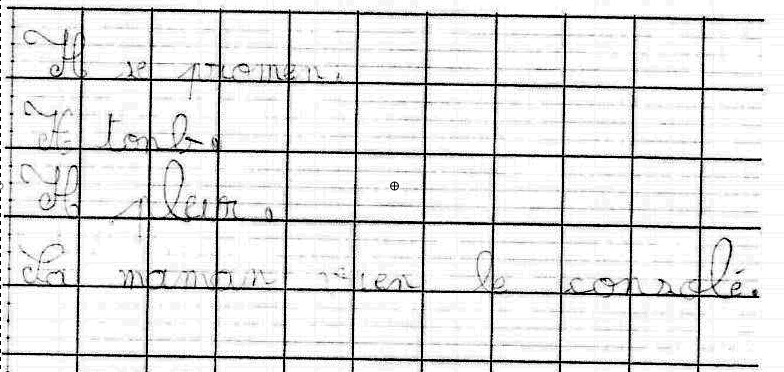 Il se promen.
Il tonb.
Il pleur.
Sa maman vien le consolé.